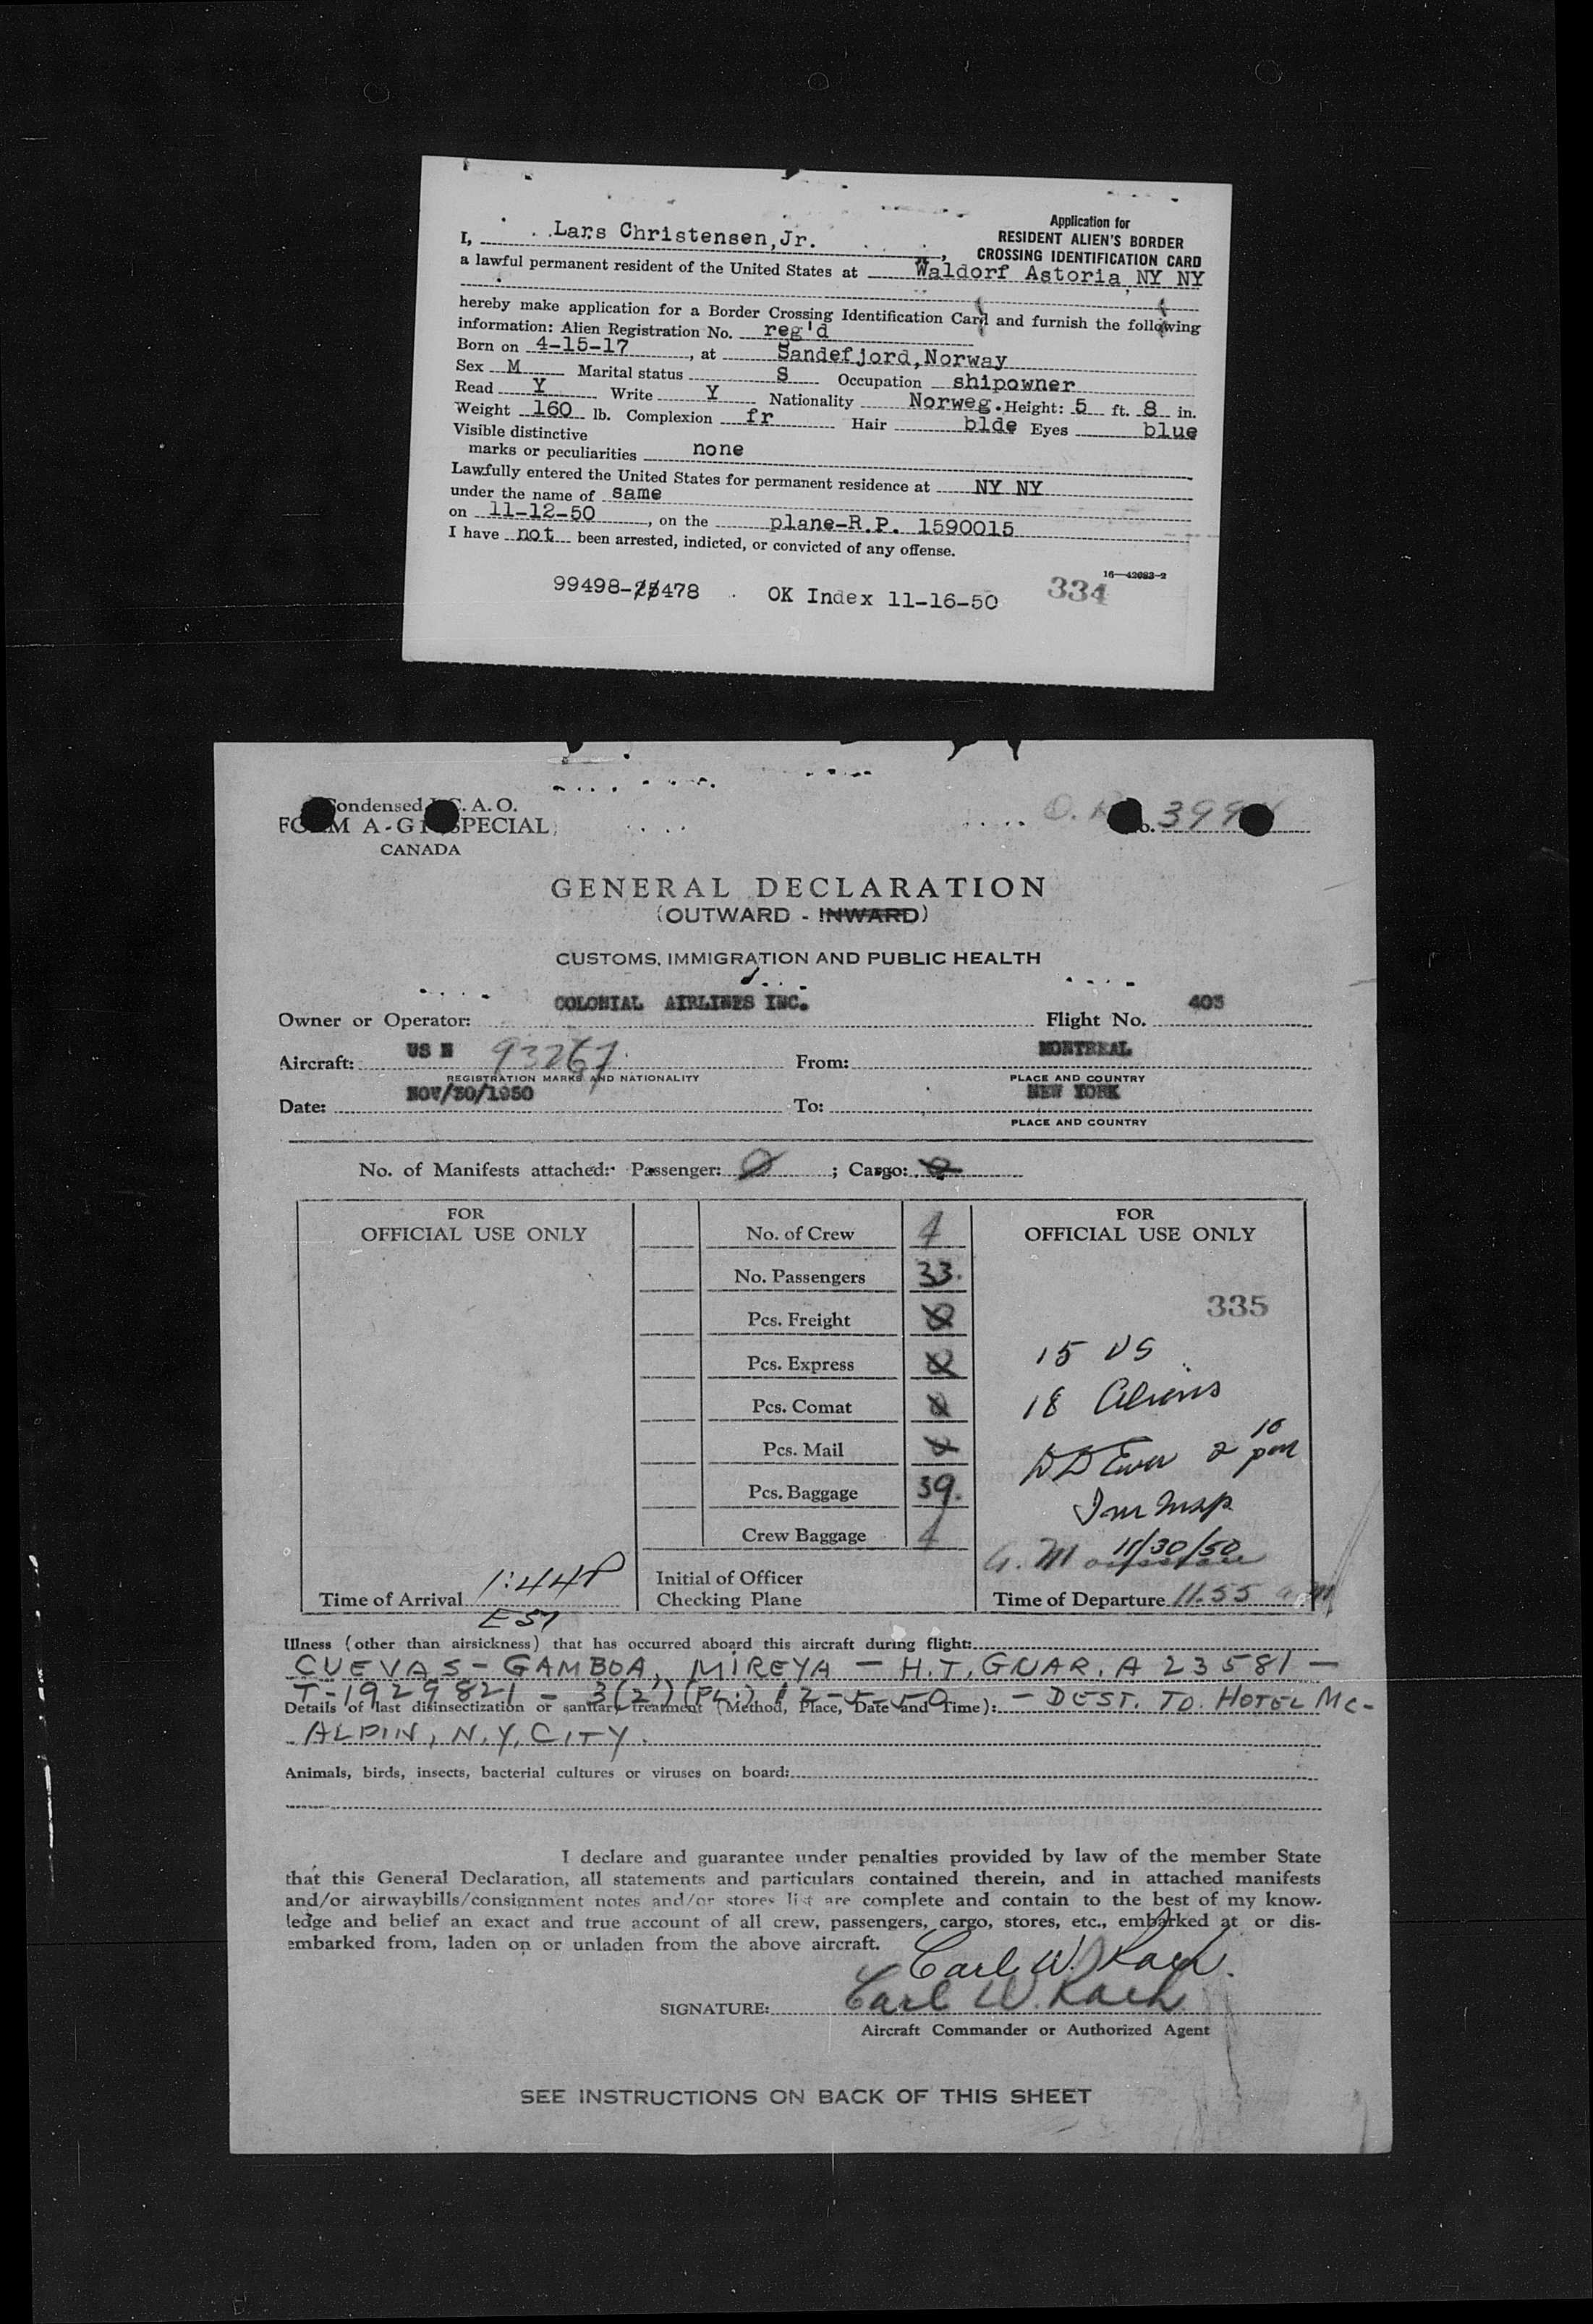 Application for
RESIDENT ALIEN'S BORDER
CROSSING IDENTIFICATION CARD
I, Lars Christensen, Jr.,
a lawful permanent resident of the United States at Waldorf Astoria, NY NY
hereby make application for a Border Crossing Identification Card and furnish the following
information: Alien Registration No. reg'd
Born on 4-15-17, at Sandefjord, Norway
Sex M Marital status S Occupation shipowner
Read Y Write Y Nationality Norweg. Height: 5 ft. 8 in.
Weight 160 lb. Complexion fr Hair blde Eyes blue
Visible distinctive
marks or peculiarities none
Lawfully entered the United States for permanent residence at NY NY
under the name of same
on 11-12-50, on the plane-R.P. 1590015
I have not been arrested, indicted, or convicted of any offense.
16—42083-2
99498-478 OK Index 11-16-50 334
Condensed I.C.A.O.
FORM A-G1 SPECIAL
CANADA
No. 399
GENERAL DECLARATION
(OUTWARD - INWARD)
CUSTOMS, IMMIGRATION AND PUBLIC HEALTH
Owner or Operator: COLONIAL AIRLINES INC. Flight No. 403
Aircraft: US N 93267 From: MONTREAL
REGISTRATION MARKS AND NATIONALITY PLACE AND COUNTRY
Date: NOV/30/1950 To: NEW YORK
PLACE AND COUNTRY
No. of Manifests attached: Passenger: 0; Cargo: 0
FOR OFFICIAL USE ONLY
FOR OFFICIAL USE ONLY
No. of Crew 4
No. Passengers 33.
Pcs. Freight 0
Pcs. Express 0
Pcs. Comat 0
Pcs. Mail 0
Pcs. Baggage 39.
Crew Baggage 4
335
15 US
18 Aliens
2 10 pm
11/30/50
Time of Arrival 1:44P
EST
Initial of Officer
Checking Plane
Time of Departure 11.55 am
Illness (other than airsickness) that has occurred aboard this aircraft during flight:
CUEVAS - GAMBOA, MIREYA — H.T. GUAR. A 23581 —
T-1929821 - 3(2)(PL.) 12-5-50 - DEST. TO HOTEL Mc-
Details of last disinsectization or sanitary treatment (Method, Place, Date and Time):
ALPIN, N.Y. CITY.
Animals, birds, insects, bacterial cultures or viruses on board:
I declare and guarantee under penalties provided by law of the member State
that this General Declaration, all statements and particulars contained therein, and in attached manifests
and/or airwaybills/consignment notes and/or stores list are complete and contain to the best of my know-
ledge and belief an exact and true account of all crew, passengers, cargo, stores, etc., embarked at or dis-
embarked from, laden on or unladen from the above aircraft.
Carl W.
SIGNATURE: Carl W.
Aircraft Commander or Authorized Agent
SEE INSTRUCTIONS ON BACK OF THIS SHEET